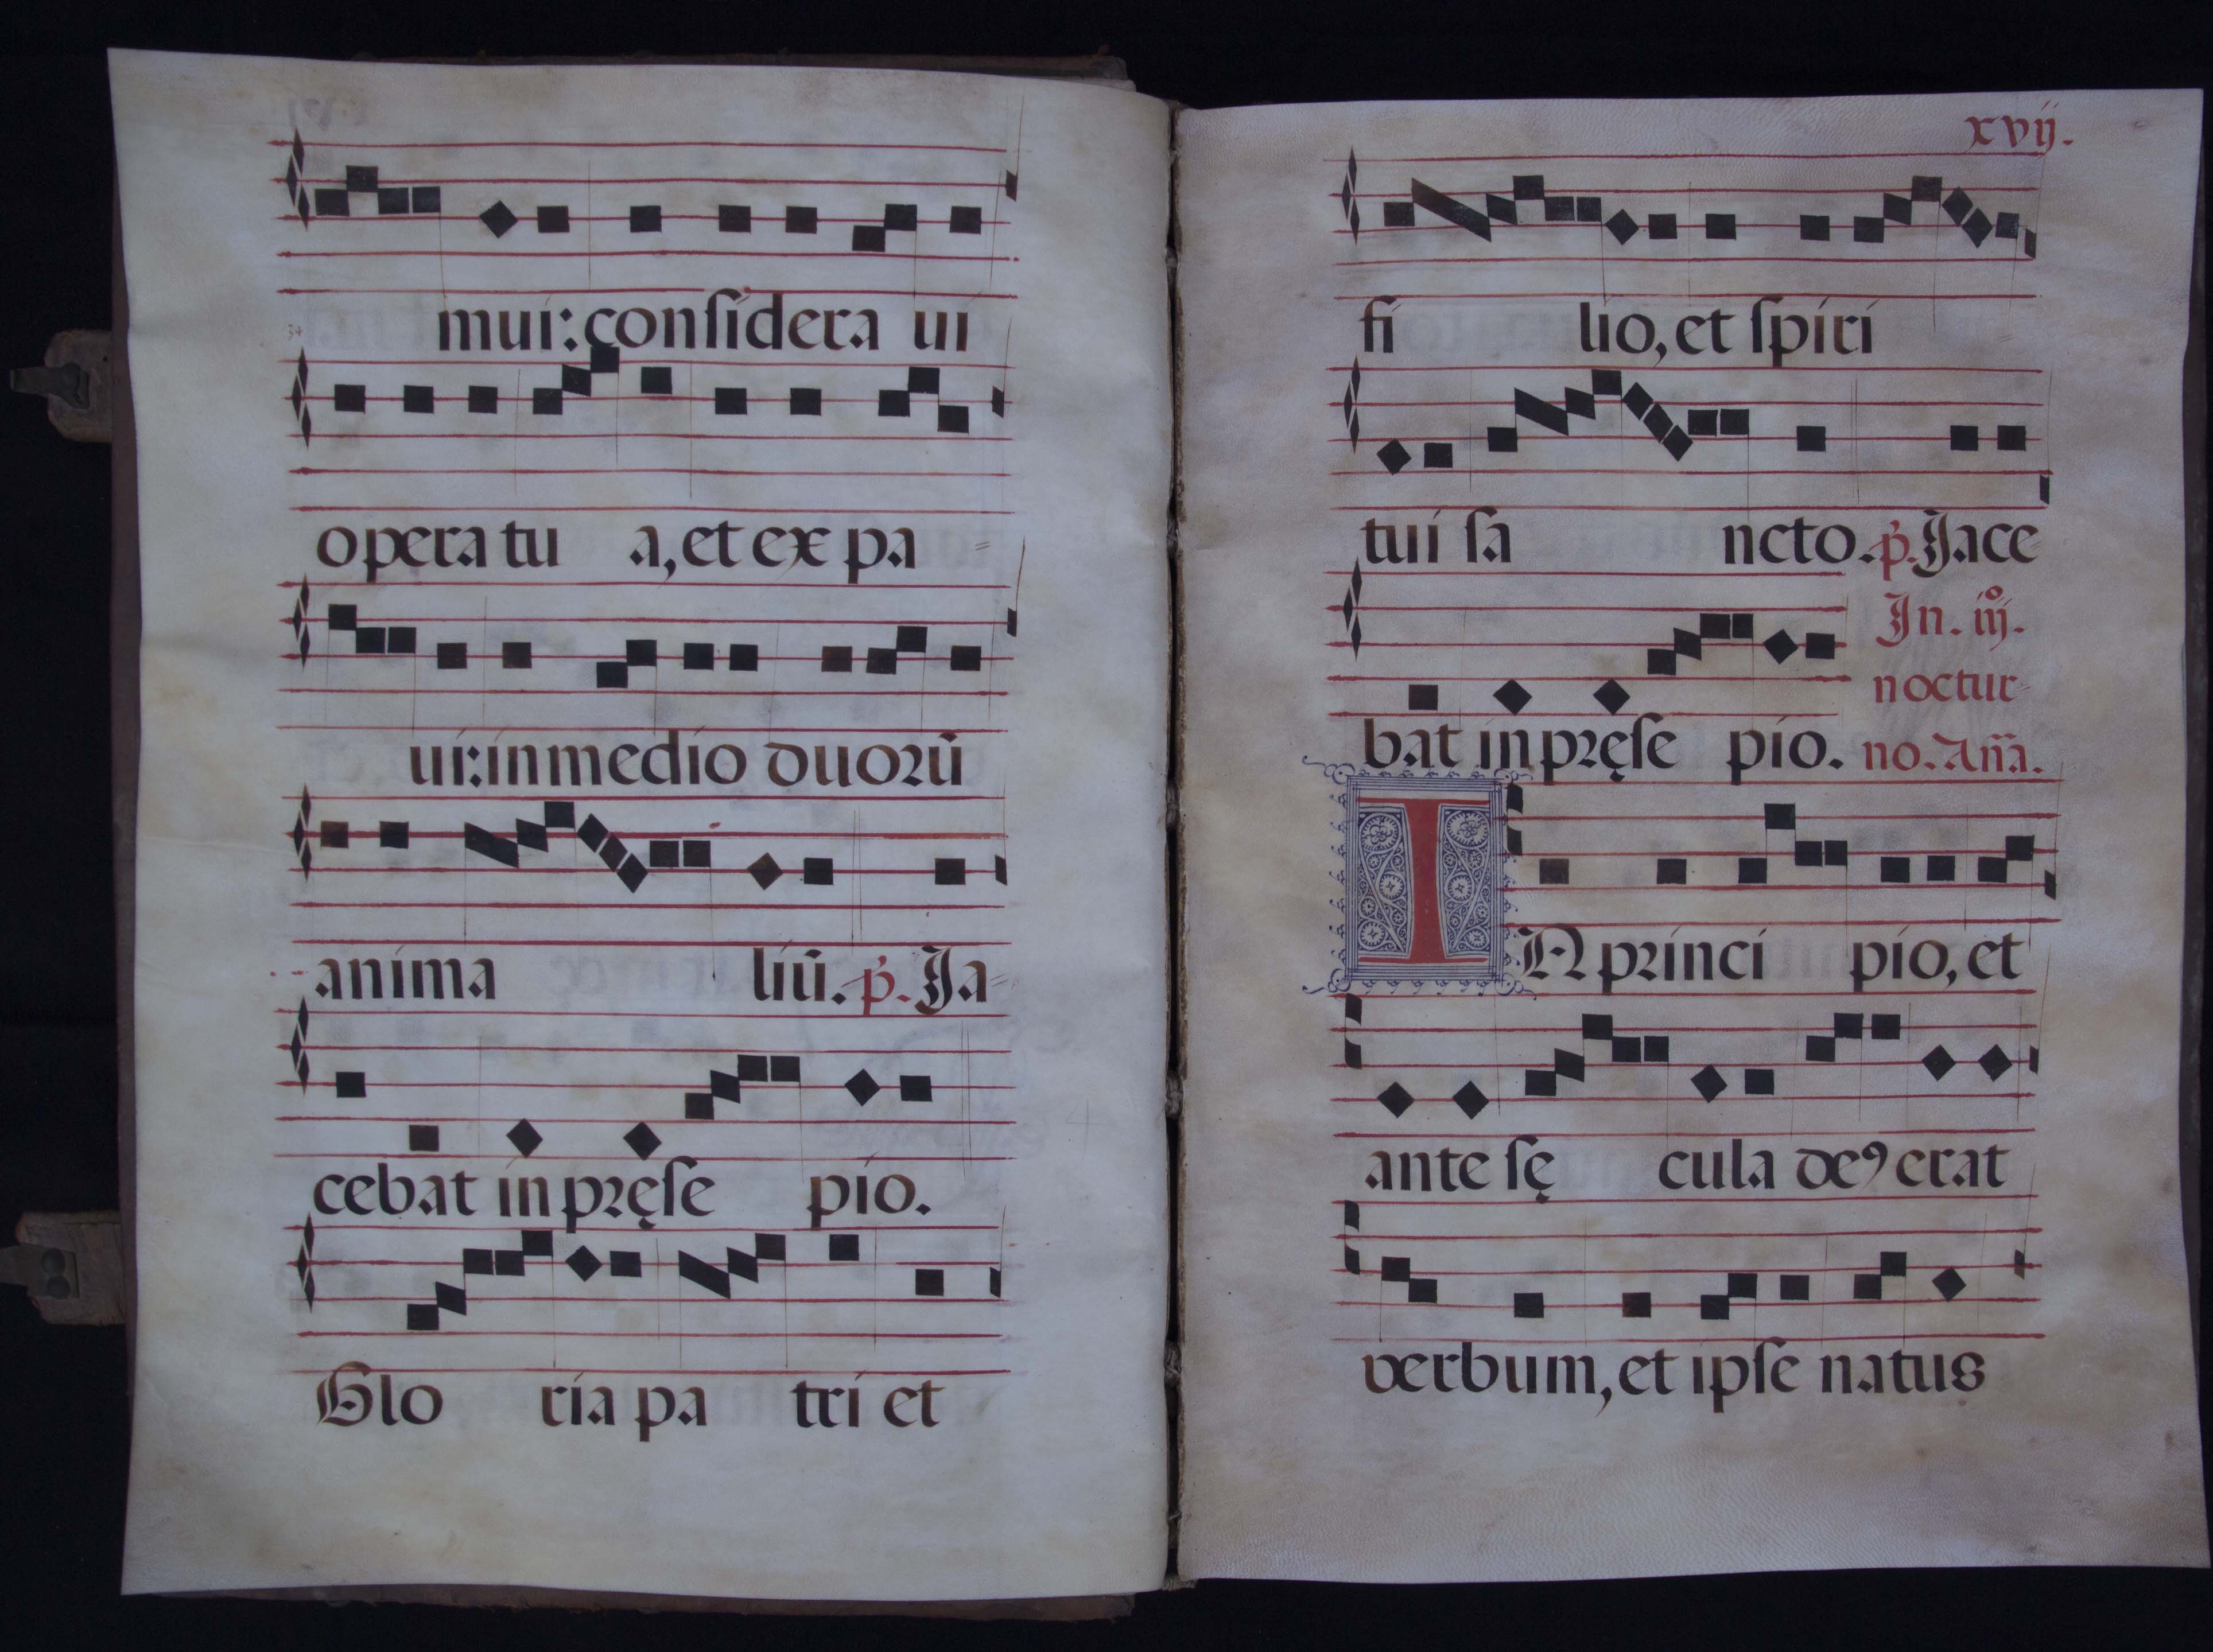 mui: conſidera ui
opera tu a, et ex pa
ui: in medio duorū
anima liū. p̄. Ja-
cebat in pręſe pio.
Glo ria pa tri et
xvij.
fi lio, et ſpiri
tui ſa ncto. p̄. Jace
In. iijº.
noctur-
bat in pręſe pio. no. Añā.
IN princi pio, et
ante ſę cula deꝰ erat
verbum, et ipſe natus